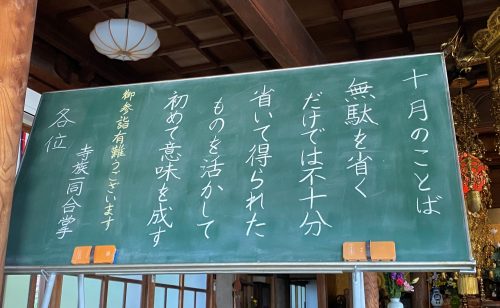 十月のことば
無駄を省く
だけでは不十分
省いて得られた
ものを活かして
初めて意味を成す
御参詣有難うございます
寺族一同合掌
各位